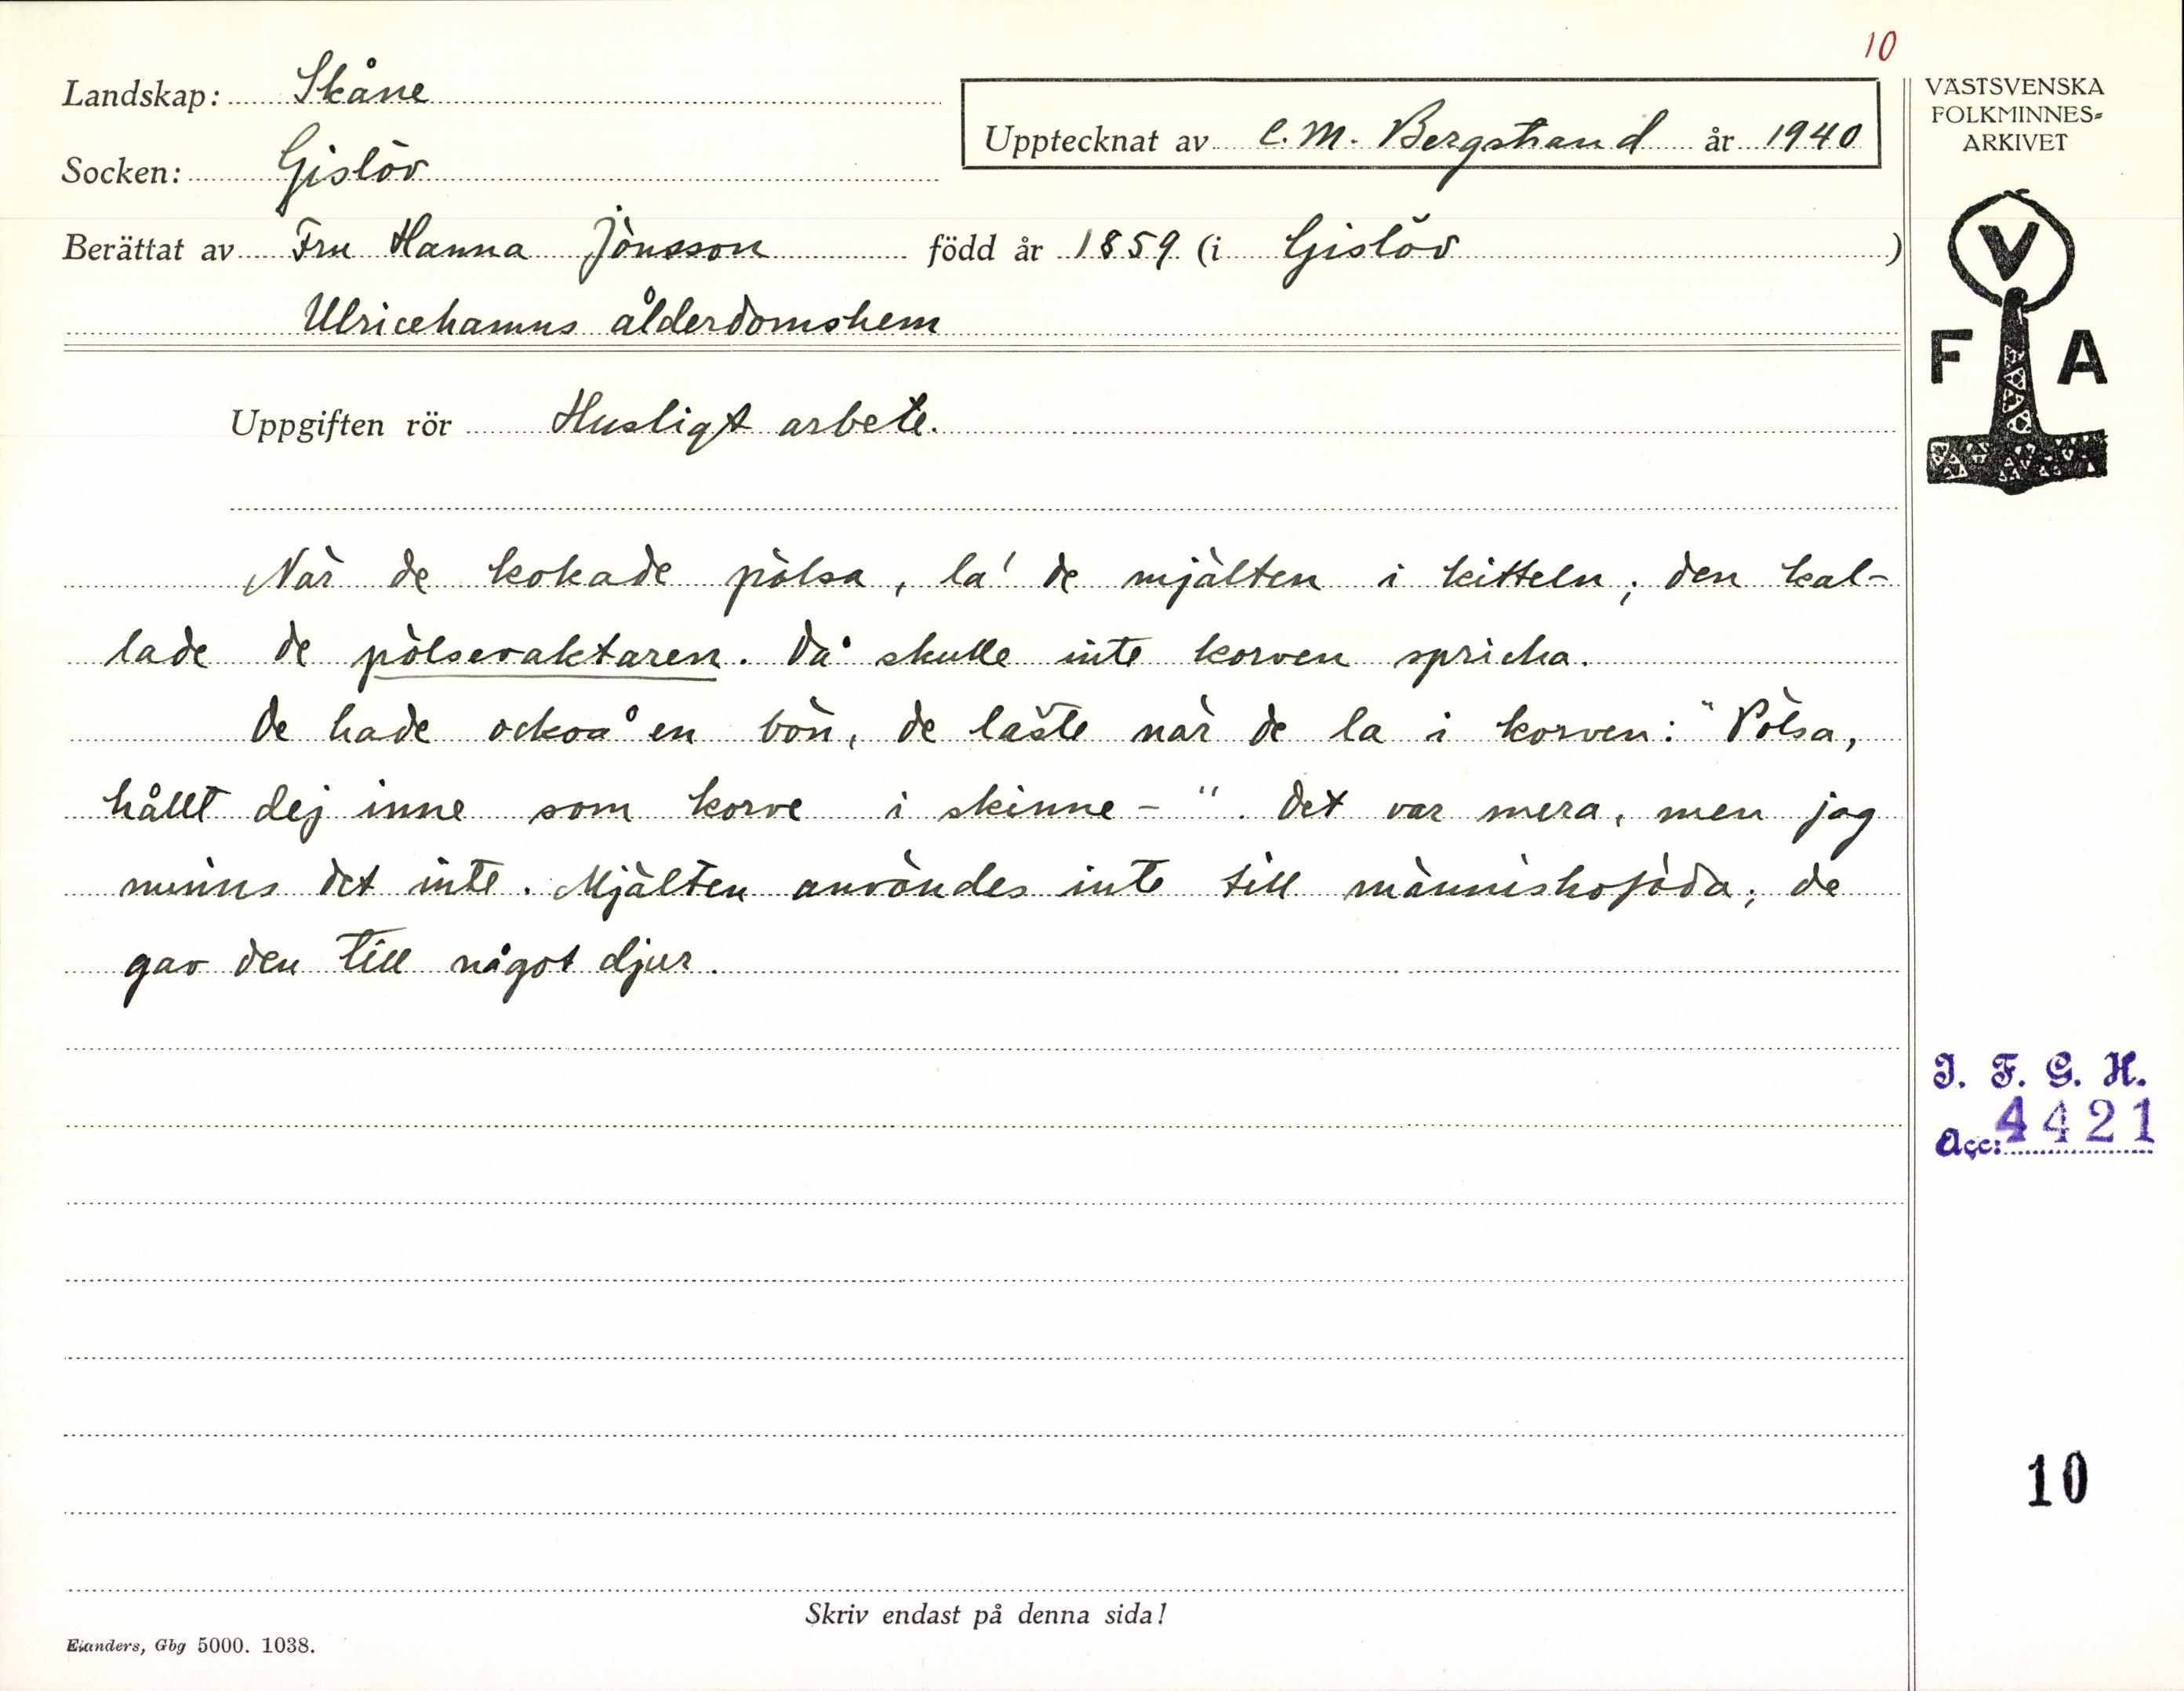 10
Landskap: Skåne
Upptecknat av C. M. Bergstrand år 1940
VÄSTSVENSKA
FOLKMINNES-
ARKIVET
Socken: Gislöv
Berättat av Fru Hanna Jönsson född år 1859 (i Gislöv)
Ulricehamns ålderdomshem
V
F A
Uppgiften rör Husligt arbete.
När de kokade pölsa, la' de mjälten i kitteln; den kal-
lade de pölsevaktaren. Då skulle inte korven spricka.
De hade också en bön, de läste när de la i korven: "Pölsa,
hållt dej inne som korve i skinne - ". Det var mera, men jag
minns det inte. Mjälten användes inte till människoföda; de
gav den till något djur.
I. F. G. H.
Acc: 4421
10
Skriv endast på denna sida!
Elanders, Gbg 5000. 1038.